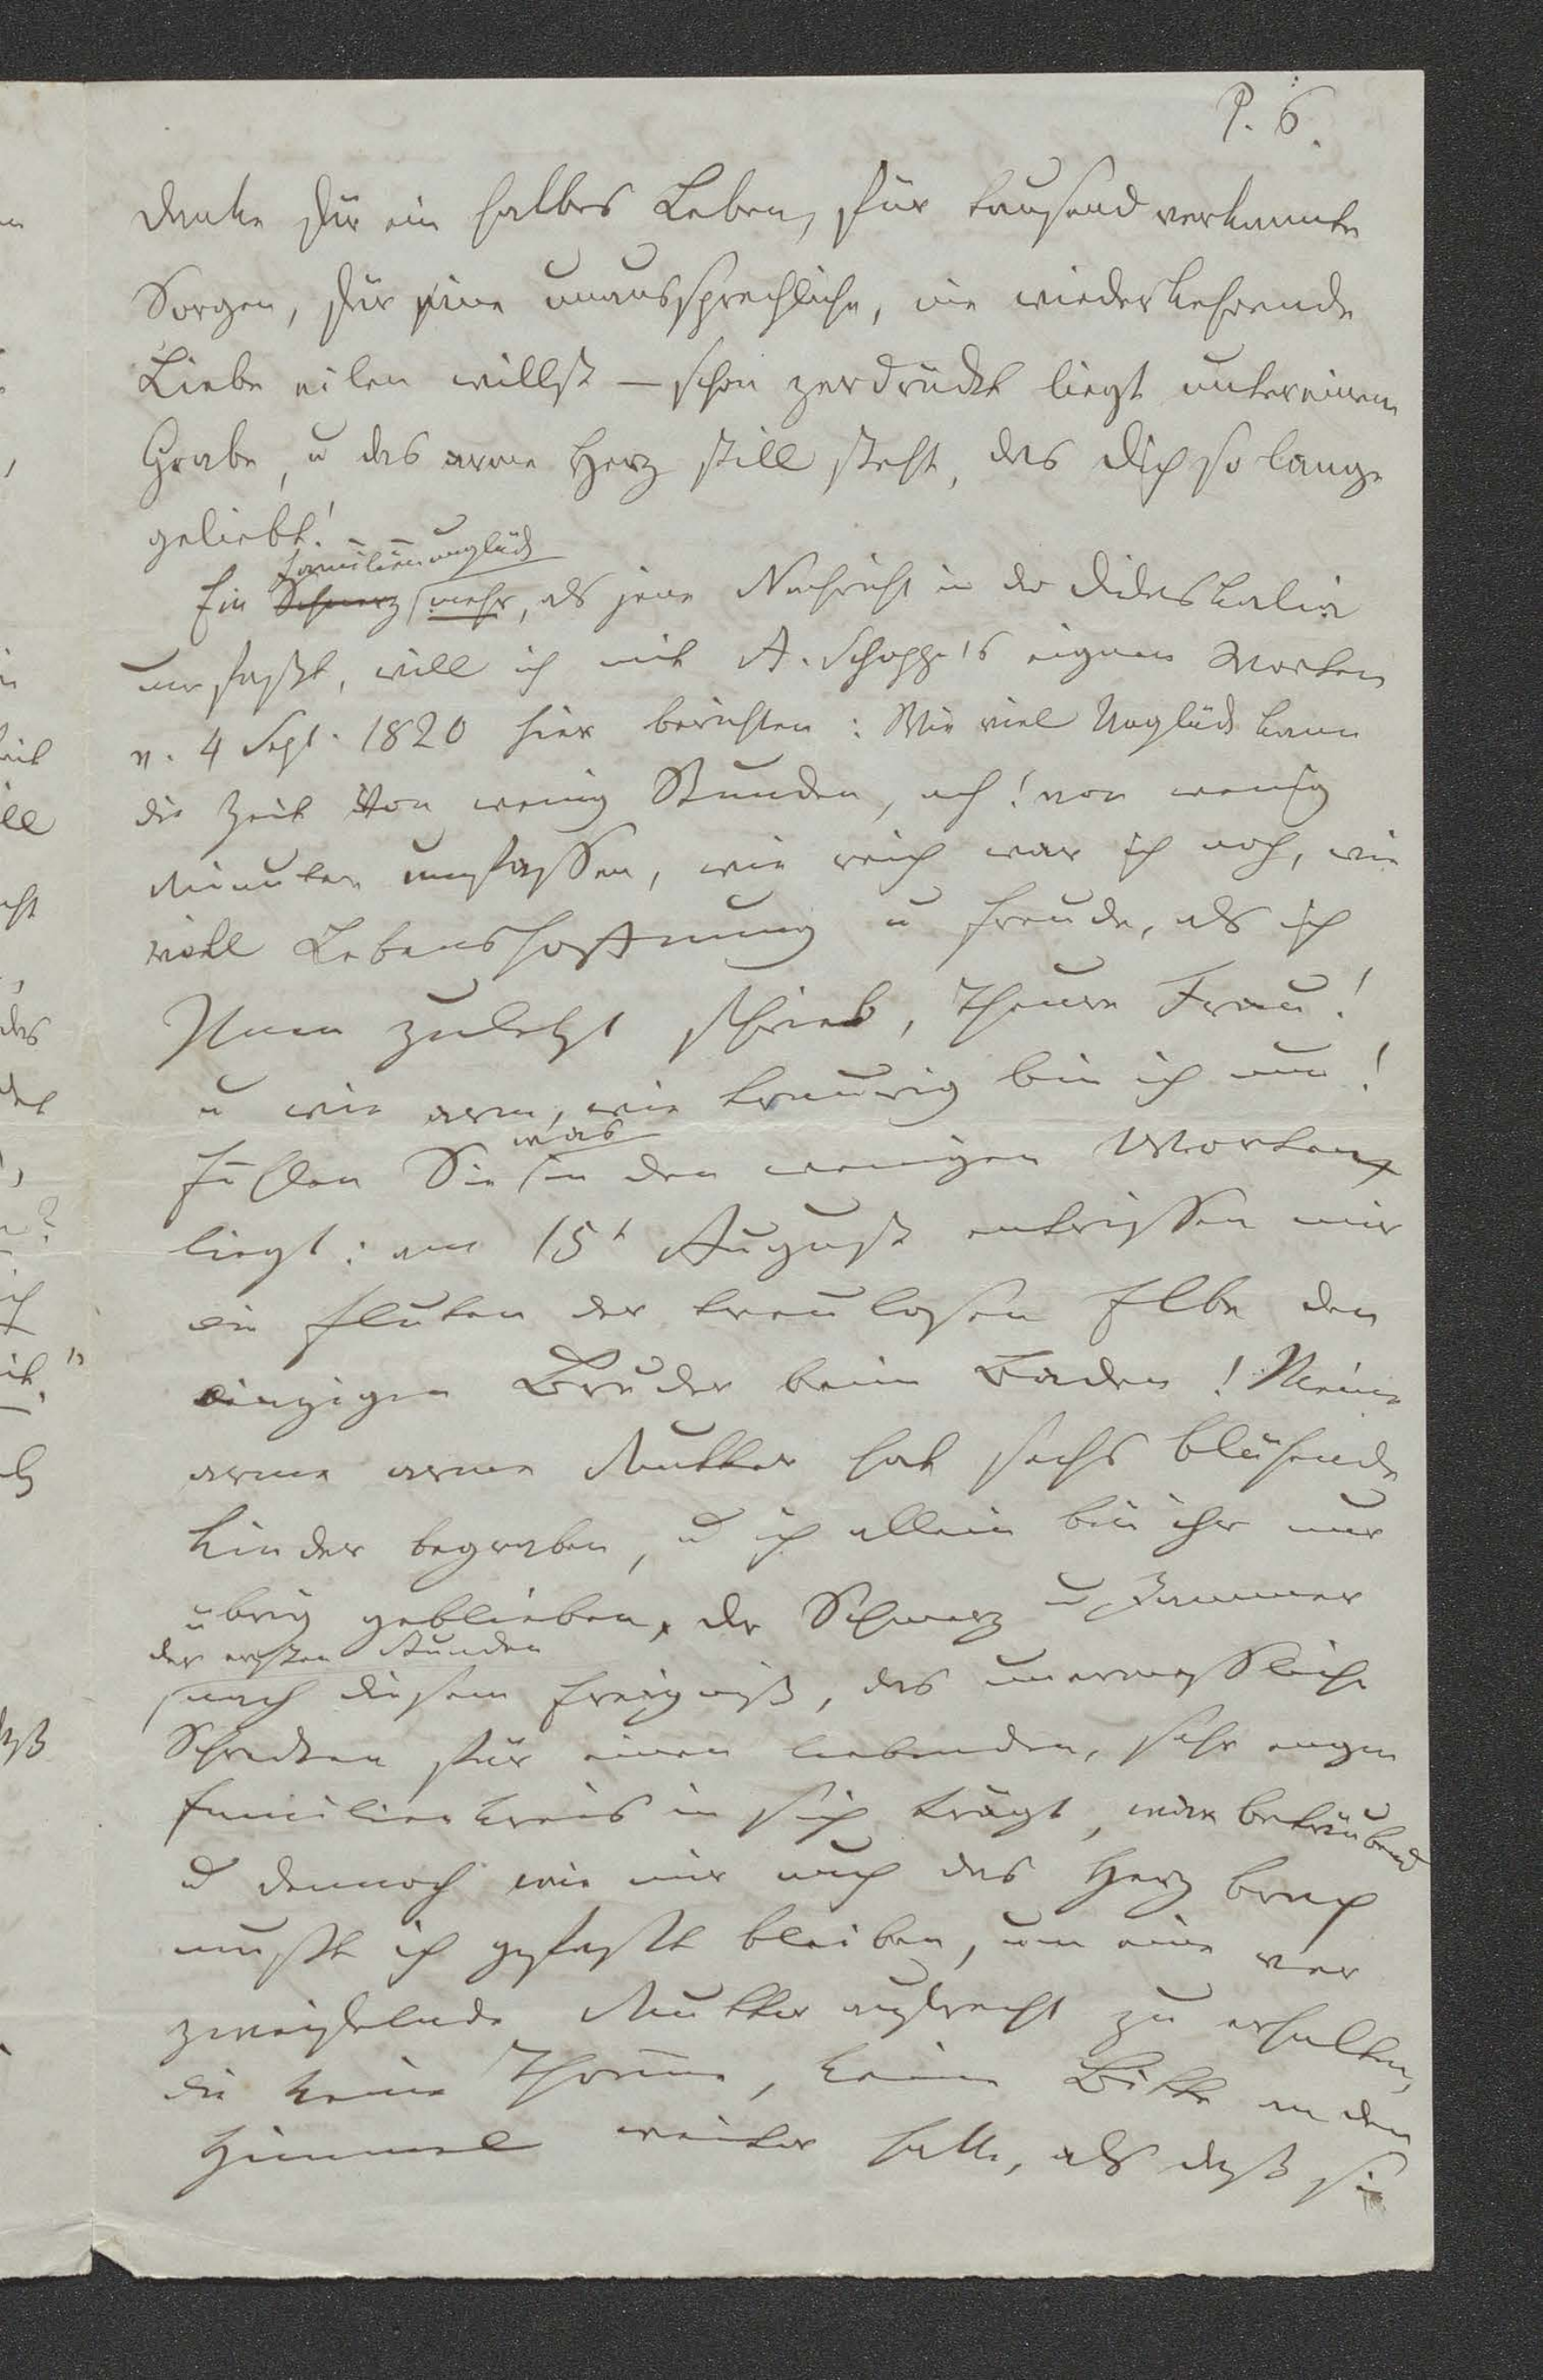 P. 6.
Danke für ein halbes Leben, für tausend verkannte
Sorgen, für eine unaussprechliche, nie wiederkehrende
Liebe eilen willst – schon zerdrückt liegt unter einem
Grabe, u das arme Herz still steht, das Dich so lange
geliebt! – –
Familienunglück
Ein Schmerz mehr, als jene Nachricht in der Didaskalia
umfaßt, will ich mit A. Schoppe's eignen Worten
v. 4 Sept. 1820 hier berichten: Wie viel Unglück kann
die Zeit von wenig Stunden, ach! von wenig
Minuten umfassen, wie reich war ich noch, wie
voll Lebenshoffnung u Freude, als ich
Ihnen zuletzt schrieb, theure Frau!
u wie arm, wie traurig bin ich nun!
was
Fühlen Sie in den wenigen Worten
liegt: am 15t August entrissen mir
die Fluten der treulosen Elbe den
einzigen Bruder beim Baden! Meine
arme arme Mutter hat sechs blühende
Kinder begraben, u ich allein bin ihr nur
übrig geblieben, der Schmerz u Jammer
der ersten Stunden
nach diesem Ereigniß, das unermessliche
Schrecken für einen liebenden, sehr engen
Familienkreis in sich trägt, war betäubend
u dennoch wie mir auch das Herz brach
mußte ich gefaßt bleiben, um eine ver
zweifelnde Mutter aufrecht zu erhalten,
die keine Thräne, keine Bitte an den
Himmel weiter hatte, als daß sie